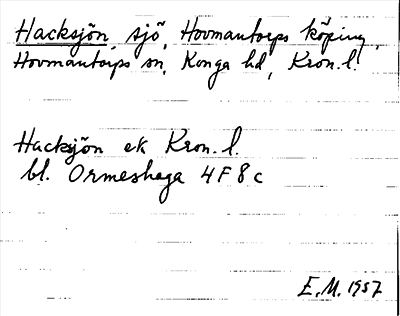 Hacksjön, sjö, Hovmantorps köping,
Hovmantorps sn, Konga hd, Kron. l.
Hacksjön ek Kron. l.
bl. Ormeshaga 4 F 8 c
E. M. 1957